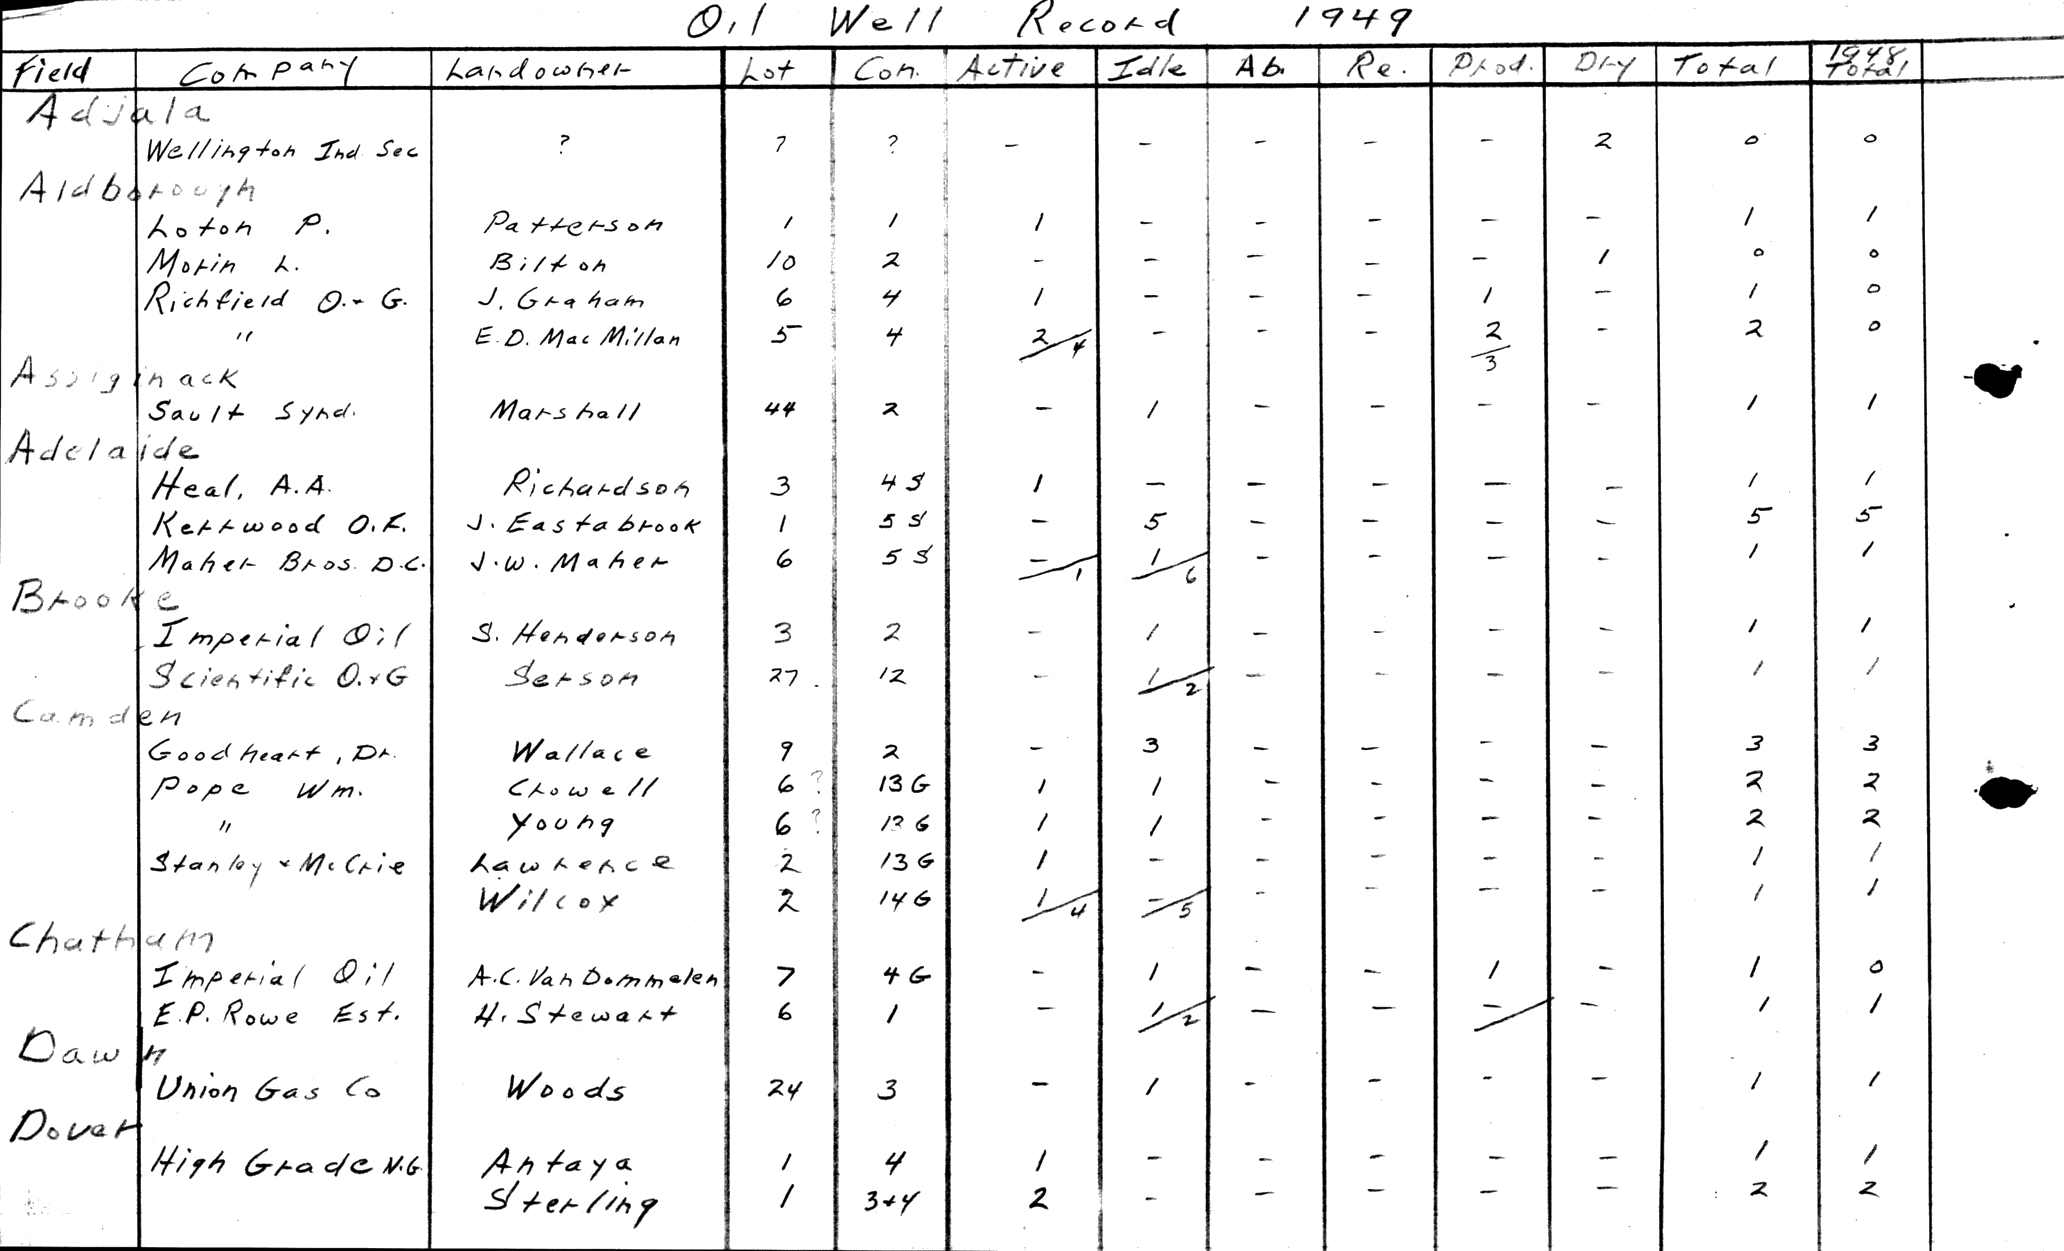 Oil Well Record 1949
Field Company Landowner Lot Con. Active Idle Ab. Re. Prod. Dry Total 1948 Total
Adjala
Wellington Ind Sec ? ? ? - - - - - 2 0 0
Aldborough
Loton P. Patterson 1 1 1 - - - - - 1 1
Morin L. Bilton 10 2 - - - - - 1 0 0
Richfield O. + G. J. Graham 6 4 1 - - - 1 - 1 0
" E.D. MacMillan 5 4 2/4 - - - 2 - 2 0
3
Assiginack
Sault Synd. Marshall 44 2 - 1 - - - - 1 1
Adelaide
Heal, A.A. Richardson 3 4 S 1 - - - - - 1 1
Kerrwood O.F. J. Eastabrook 1 5 S - 5 - - - - 5 5
Maher Bros. D.C. J.W. Maher 6 5 S -/1 1/6 - - - - 1 1
Brooke
Imperial Oil S. Henderson 3 2 - 1 - - - - 1 1
Scientific O. + G Serson 27. 12 - 1/2 - - - - 1 1
Camden
Goodheart, Dr. Wallace 9 2 - 3 - - - - 3 3
Pope Wm. Crowell 6 ? 13 G 1 1 - - - - 2 2
" Young 6 ? 13 G 1 1 - - - - 2 2
Stanley + McCrie Lawrence 2 13 G 1 - - - - - 1 1
Wilcox 2 14 G 1/4 -/5 - - - - 1 1
Chatham
Imperial Oil A.C. Van Dommelen 7 4 G - 1 - - 1 - 1 0
E.P. Rowe Est. H. Stewart 6 1 - 1/2 - - - - 1 1
Dawn
Union Gas Co Woods 24 3 - 1 - - - - 1 1
Dover
High Grade N.G. Antaya 1 4 1 - - - - - 1 1
Sterling 1 3+4 2 - - - - - 2 2